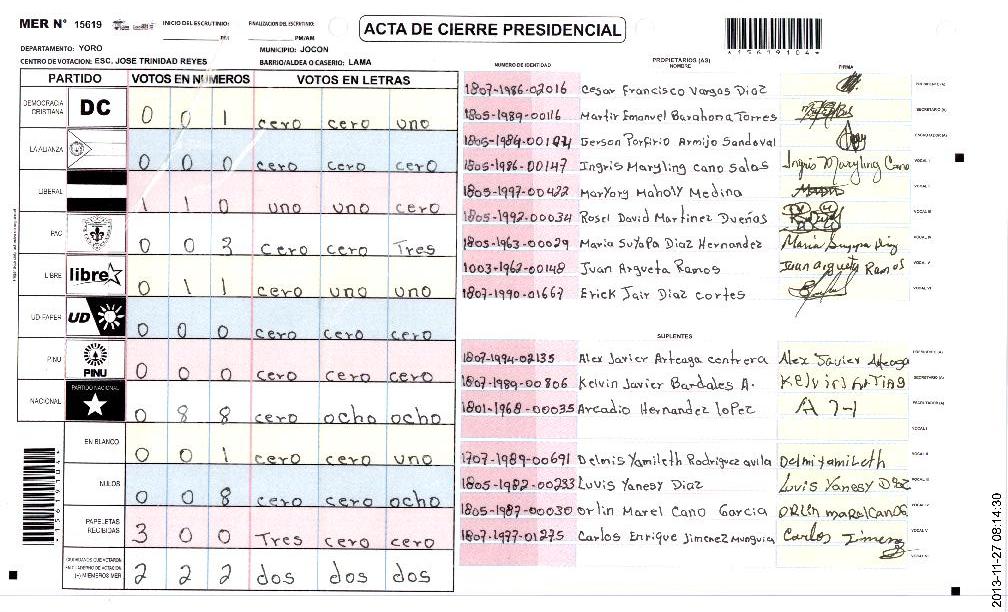 MER N° 15619 INICIO DEL ESCRUTINIO: FINALIZACION DEL ESCRUTINIO: ACTA DE CIERRE PRESIDENCIAL
PM/AM
*15619104*
DEPARTAMENTO: YORO MUNICIPIO: JOCON
CENTRO DE VOTACION: ESC. JOSE TRINIDAD REYES BARRIO/ALDEA O CASERIO: LAMA
PARTIDO VOTOS EN NUMEROS VOTOS EN LETRAS
DEMOCRACIA CRISTIANA DC 0 0 1 cero cero uno
LA ALIANZA 0 0 0 cero cero cero
LIBERAL 1 1 0 uno uno cero
PAC 0 0 3 cero cero Tres
LIBRE libre 0 1 1 cero uno uno
UD-FAPER UD 0 0 0 cero cero cero
PINU PINU 0 0 0 cero cero cero
NACIONAL PARTIDO NACIONAL 0 8 8 cero ocho ocho
EN BLANCO 0 0 1 cero cero uno
NULOS 0 0 8 cero cero ocho
PAPELETAS RECIBIDAS 3 0 0 Tres cero cero
CIUDADANOS QUE VOTARON EN CUADERNO DE VOTACION (+) MIEMBROS MER 2 2 2 dos dos dos
*15619104*
NUMERO DE IDENTIDAD PROPIETARIOS (AS) NOMBRE FIRMA
1807-1986-02016 Cesar Francisco Vargas Diaz PRESIDENTE (A)
1805-1989-0016 Martir Emanuel Barahona Torres SECRETARIO (A)
Gerson Porfirio Armijo Sandoval ESCRUTADOR (A)
1805-1986-00147 Ingris Maryling cano Salas Ingris Maryling Cano VOCAL I
1805-1997-00422 Maryory Maholy Medina
1805-1992-00034 Rosel David Martinez Dueñas VOCAL III
1805-1963-00029 Maria Suyapa Diaz Hernandez Maria Suyapa Diaz VOCAL IV
1003-1962-00148 Juan Argueta Ramos Juan argueta Ramos VOCAL V
1807-1990-01667 Erick Jair Diaz cortes VOCAL VI
SUPLENTES
1807-1994-02135 Alex Javier Arteaga contrera Alex Javier Arteaga PRESIDENTE (A)
1807-1989-00806 Kelvin Javier Bardales A. SECRETARIO (A)
1801-1968-00035 Arcadio Hernandez lopez ESCRUTADOR (A)
VOCAL I
1707-1989-00691 Delmis Yamileth Rodriguez avila Delmi Yamileth VOCAL II
1805-1982-00233 Luvis Yanesy Diaz Luvis Yanesy Diaz VOCAL III
1805-1987-00030 orlin Marel Cano Garcia ORLin maRelCANOG VOCAL IV
1807-1977-01275 Carlos Enrique Jimenez Munguia Carlos Jimenez VOCAL V
VOCAL VI
2013-11-27 08:14:30